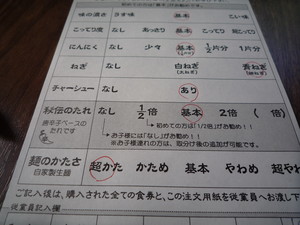 味の濃さ うす味 基本 こい味
こってり度 なし あっさり 基本 こってり 超こってり
にんにく なし 少々 基本 1/2片分 1片分
ねぎ なし 白ねぎ 青ねぎ
チャーシュー なし あり
秘伝のたれ なし 1/2倍 基本 2倍 ( 倍)
唐辛子ベースの
たれです
初めての方は「1/2倍」がお勧め!!
→お子様には「なし」がお勧め!!
※お子様連れの方は、取分け後の追加が可能です。
麺のかたさ 超かた かため 基本 やわめ 超やわ
自家製生麺
ご記入後は、購入された全ての食券と、この注文用紙を従業員へお渡し下
従業員記入欄